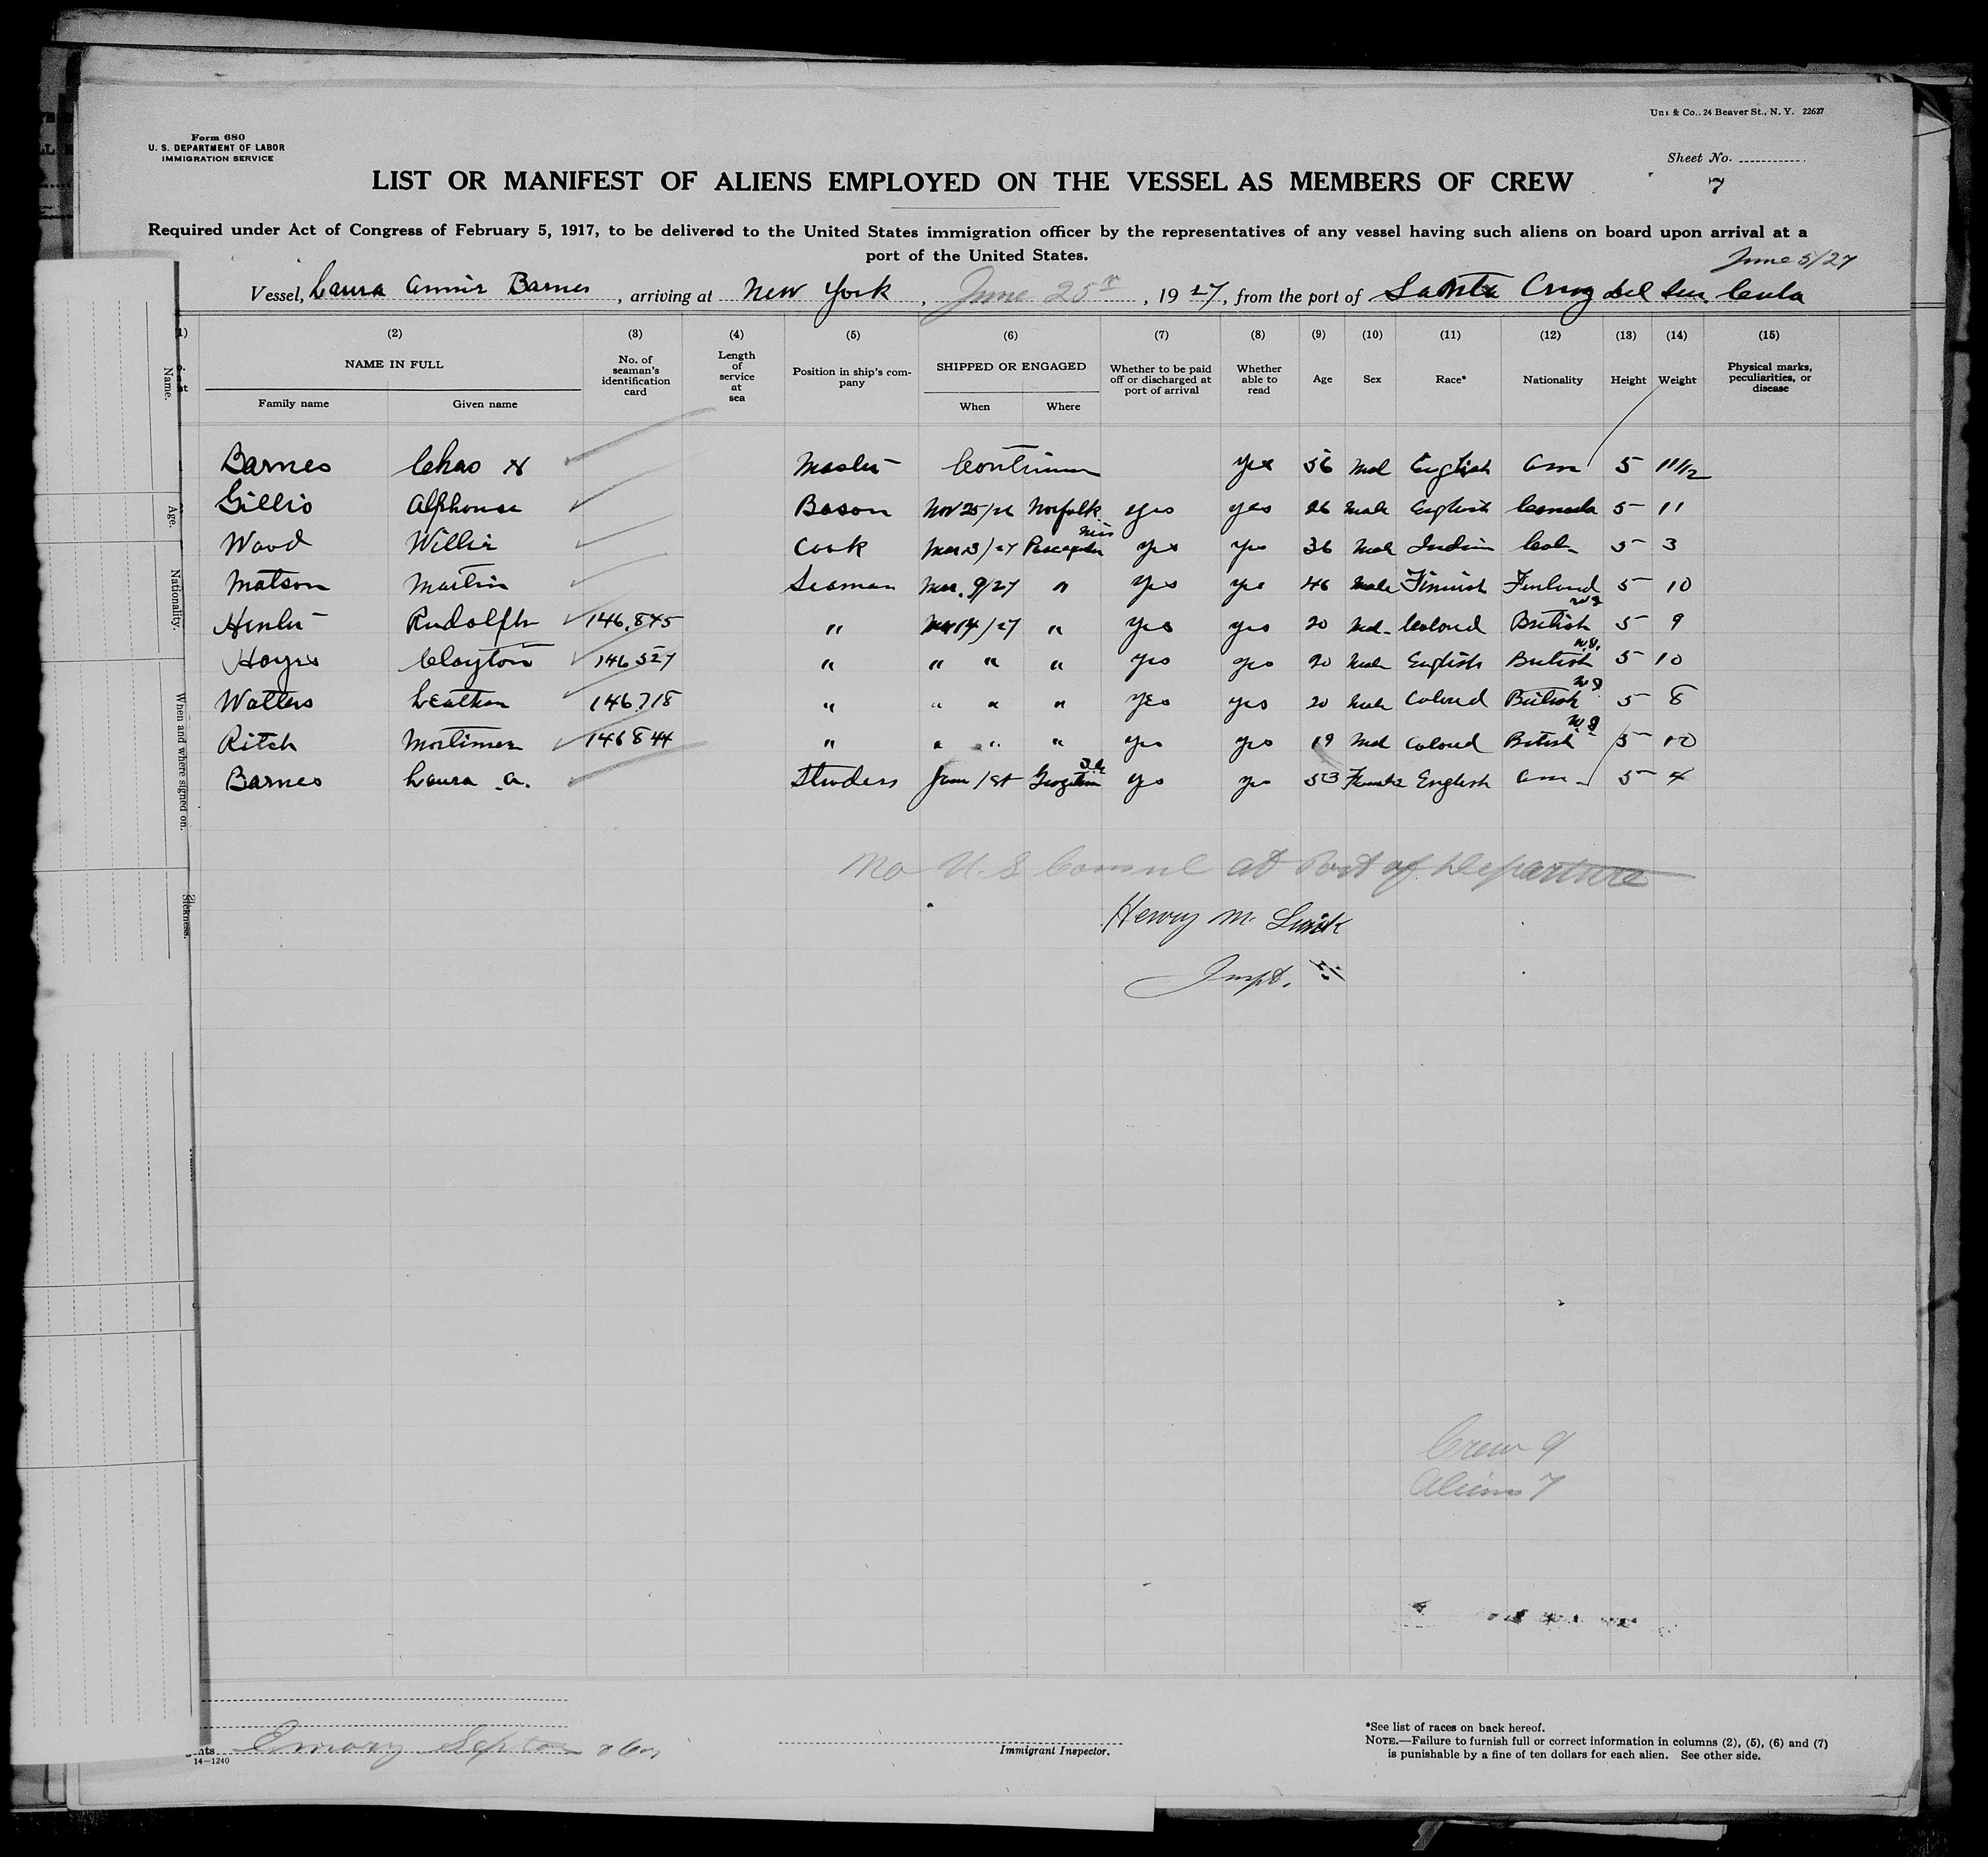 Uni & Co., 24 Beaver St., N. Y. 22627
Form 680
U. S. DEPARTMENT OF LABOR
IMMIGRATION SERVICE
Sheet No.
7
LIST OR MANIFEST OF ALIENS EMPLOYED ON THE VESSEL AS MEMBERS OF CREW
Required under Act of Congress of February 5, 1917, to be delivered to the United States immigration officer by the representatives of any vessel having such aliens on board upon arrival at a
port of the United States.
June 5/27
Vessel, Laura Annie Barnes, arriving at New York, June 25th, 1927, from the port of Santa Cruz del Sur. Cuba
(1) (2) (3) (4) (5) (6) (7) (8) (9) (10) (11) (12) (13) (14) (15)
NAME IN FULL
Family name Given name
No. of seaman's identification card
Length of service at sea
Position in ship's company
SHIPPED OR ENGAGED
When Where
Whether to be paid off or discharged at port of arrival
Whether able to read
Age Sex Race* Nationality Height Weight
Physical marks, peculiarities, or disease
Barnes Chas Master Continuous yes 56 Mal English Am 5 11 1/2
Gillis Alphonse Boson Nov 25/26 Norfolk yes yes 26 male English Canada 5 11
Wood Willie Cook Mar 13/27 Pascagoula Miss yes yes 36 Mal Indian 5 3
Matson Martin Seaman Mar. 9/27 " yes yes 46 male Finnish Finland 5 10
Rudolph 146,845 " Mar 14/27 " yes yes 20 Mal Colored British W I 5 9
Hayes Clayton 146527 " " " " yes yes 20 Male English British W.I. 5 10
Watters Leathan 146718 " " " " yes yes 20 Male Colored British W I 5 8
Ritch Mortimer 146844 " " " " yes yes 19 Mal Colored British W I 5 10
Barnes Laura A. Stewdess Jan 1st Georgetown yes yes 53 Female English Am 5 4
No U.S Consul at Port of Departure
Henry M.
Inspt.
Crew 9
Aliens 7
Name.
Age.
Nationality.
When and where signed on.
Sickness.
Emory
14—1240
Immigrant Inspector.
*See list of races on back hereof.
NOTE.—Failure to furnish full or correct information in columns (2), (5), (6) and (7)
is punishable by a fine of ten dollars for each alien. See other side.